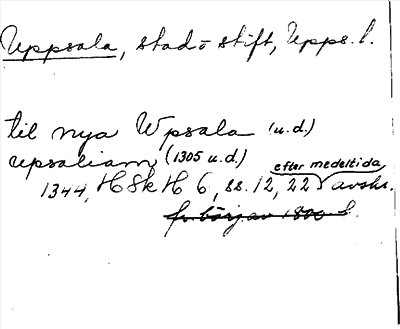 Uppsala, stad o stift, Upps. l.
til nya Wpsala (u.d.)
upsaliam (1305 u.d.)
efter medeltida
1344, HSkH 6, ss. 12, 22 avskr.
fr. börj. av 1800 t.